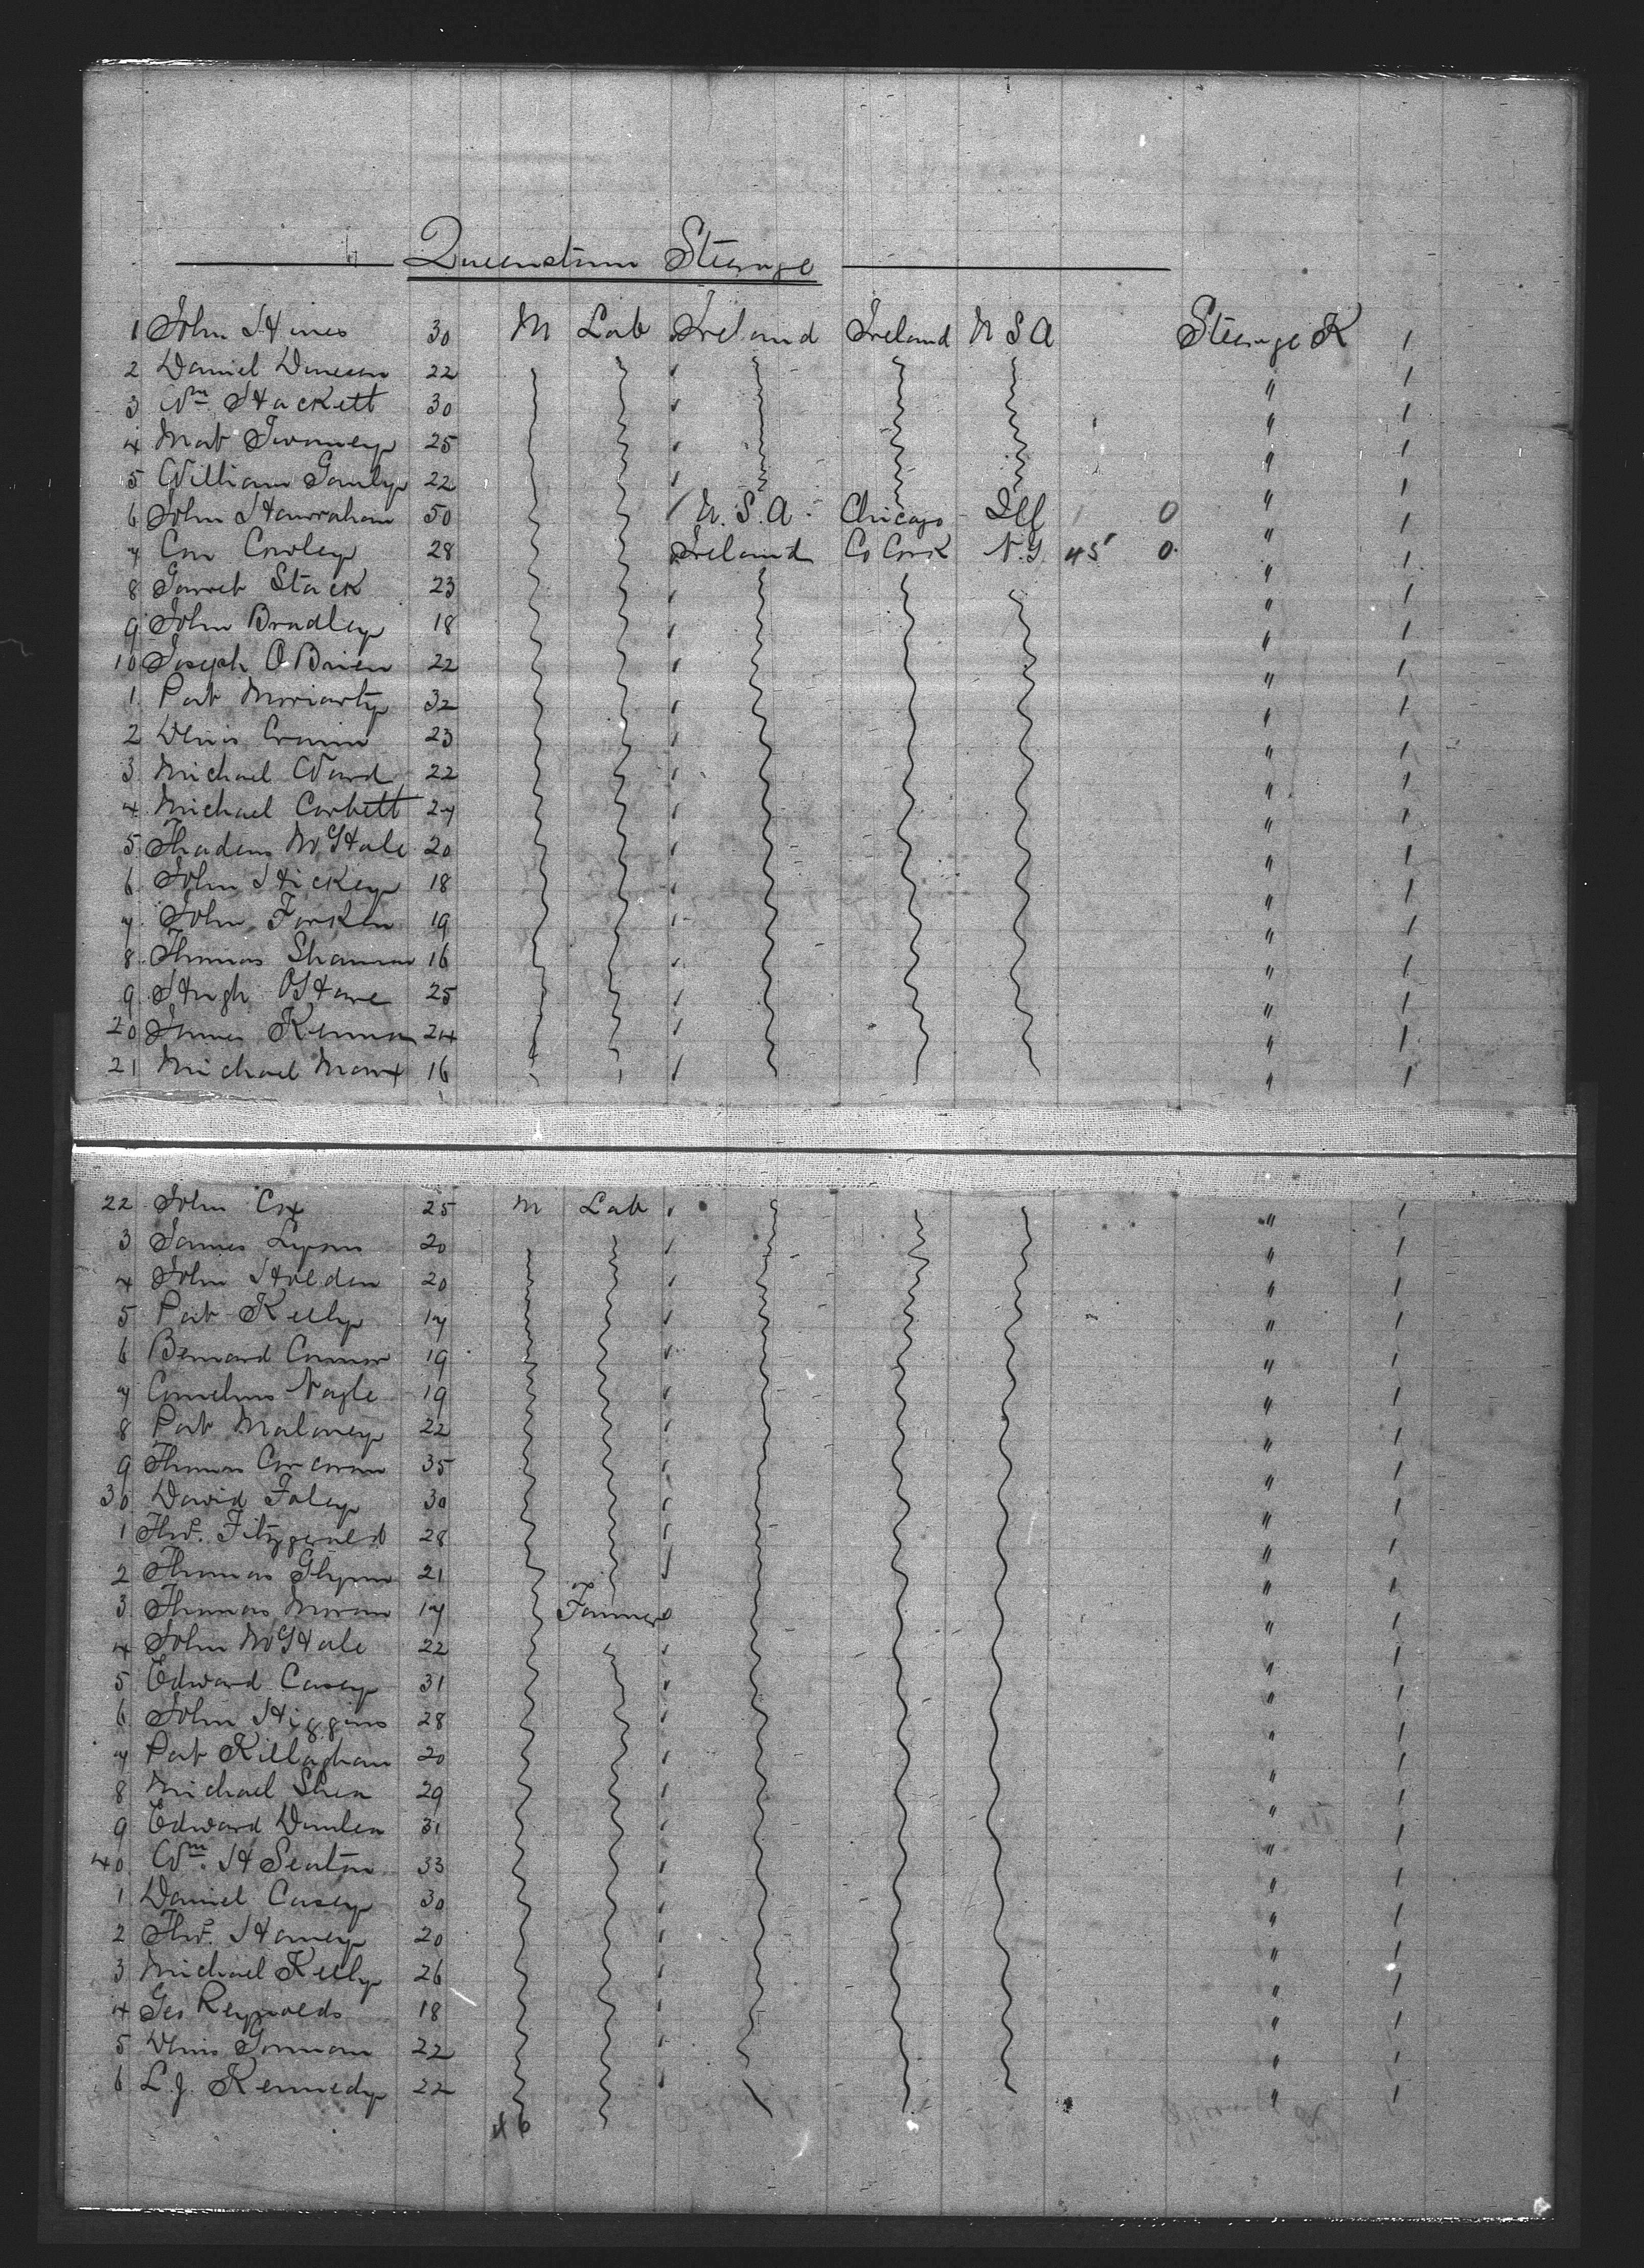 Queenstown Steerage
1 John Hines 30 M Lab Ireland Ireland U S A Steerage K 1
2 Daniel Duncan 22 " 1
3 Wm Hackett 30 " 1
4 Mat Twomey 25 " 1
5 William Gauly 22 " 1
6 John Hanrahan 50 U.S.A. Chicago Ill 0 " 1
7 Con Cowley 28 Ireland Co Cork N.Y. 45 0 " 1
8 Garret Stack 23 " 1
9 John Bradley 18 " 1
10 Joseph O Brien 22 " 1
1 Pat Moriarty 32 " 1
2 Denis Cronin 23 " 1
3 Michael Ward 22 " 1
4 Michael Corbett 27 " 1
5 Thadeus McHale 20 " 1
6 John Hickey 18 " 1
7 John Forken 19 " 1
8 Thomas Shannon 16 " 1
9 Hugh OHare 25 " 1
20 James Kennan 24 " 1
21 Michael Marx 16 " 1
22 John Cox 25 M Lab " 1
3 James Lyons 20 " 1
4 John Holden 20 " 1
5 Pat Kelly 17 " 1
6 Bernard Connor 19 " 1
7 Cornelius Nagle 19 " 1
8 Pat Maloney 22 " 1
9 Thomas Corcoran 35 " 1
30 David Foley 30 " 1
1 Thos. Fitzgerald 28 " 1
2 Thomas Glynn 21 " 1
3 Thomas Moran 17 Farmer " 1
4 John McHale 22 " 1
5 Edward Casey 31 " 1
6 John Higgins 28 " 1
7 Pat Killaghan 20 " 1
8 Michael Shea 29 " 1
9 Edward Dunlea 31 " 1
40 Wm. H Seaton 33 " 1
1 Daniel Casey 30 " 1
2 Thos. Haney 20 " 1
3 Michael Kelly 26 " 1
4 Geo Reynolds 18 " 1
5 Denis Gorman 22 " 1
6 L.J. Kennedy 22 " 1
46